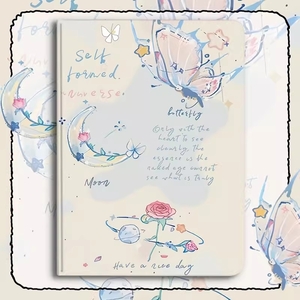 Self
formed.
universe
butterfly
Only with the
heart to see
clearly, the
essence is the
naked age cannot
see what is thing
Moon
Have a nice day